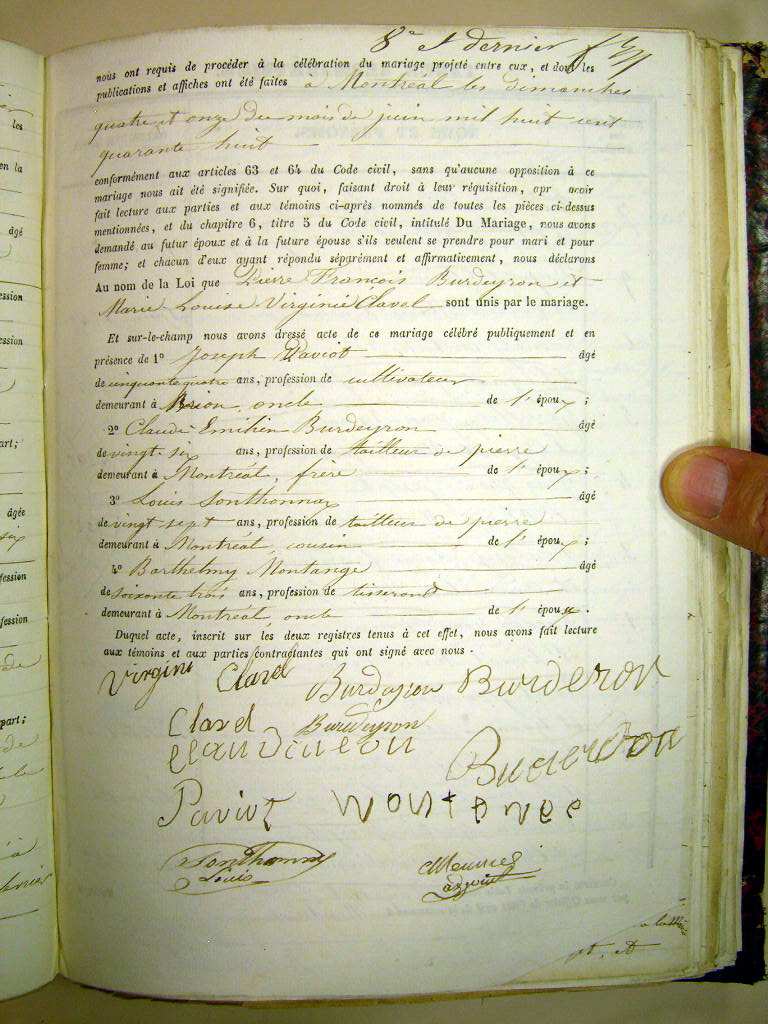 8e et dernier f
nous ont requis de procéder à la célébration du mariage projeté entre eux, et dont les
publications et affiches ont été faites à Montréal les dimanches
quatre et onze du mois de juin mil huit cent
quarante huit
conformément aux articles 63 et 64 du Code civil, sans qu'aucune opposition à ce
mariage nous ait été signifiée. Sur quoi, faisant droit à leur réquisition, apr avoir
fait lecture aux parties et aux témoins ci-après nommés de toutes les pièces ci-dessus
mentionnées, et du chapitre 6, titre 5 du Code civil, intitulé Du Mariage, nous avons
demandé au futur époux et à la future épouse s'ils veulent se prendre pour mari et pour
femme; et chacun d'eux ayant répondu séparément et affirmativement, nous déclarons
Au nom de la Loi que Pierre François Burdeyron et
Marie Louise Virginie Clavel sont unis par le mariage.
Et sur-le-champ nous avons dressé acte de ce mariage célébré publiquement et en
présence de 1° Joseph Paviot âgé
de cinquante quatre ans, profession de cultivateur
demeurant à Brion, oncle de l' époux;
2° Claude Emilien Burdeyron âgé
de vingt six ans, profession de tailleur de pierre
demeurant à Montréal, frère de l' époux;
3° Louis Sonthonnax âgé
de vingt sept ans, profession de tailleur de pierre
demeurant à Montréal, cousin de l' époux;
4° Barthelmy Montange âgé
de soixante trois ans, profession de tisserand
demeurant à Montréal, oncle de l' épouse.
Duquel acte, inscrit sur les deux registres tenus à cet effet, nous avons fait lecture
aux témoins et aux parties contractantes qui ont signé avec nous.
Virgini Clavel Burdeyron Burderon
Clavel Burdeyron
Paviot
Sonthonnax
Louis
Meunier
adjoint